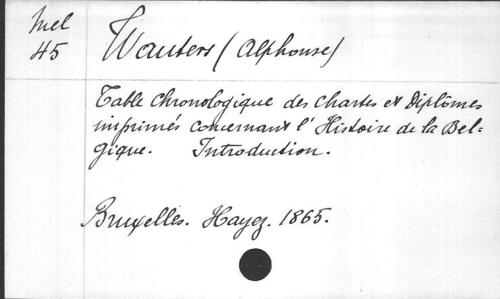 Mel
45
Wauters (Alphonse)
Table chronologique des chartes et diplômes
imprimés concernant l'Histoire de la Bel-
gique. Introduction.
Bruxelles. Hayez. 1865.